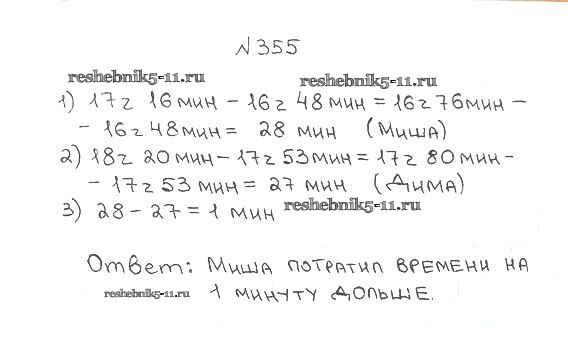 № 355
reshebnik5-11.ru
reshebnik5-11.ru
1) 17 г 16 мин – 16 г 48 мин = 16 г 76 мин –
– 16 г 48 мин = 28 мин (Миша)
2) 18 г 20 мин – 17 г 53 мин = 17 г 80 мин –
– 17 г 53 мин = 27 мин (Дима)
3) 28 – 27 = 1 мин reshebnik5-11.ru
Ответ: Миша потратил времени на
reshebnik5-11.ru 1 минуту дольше.